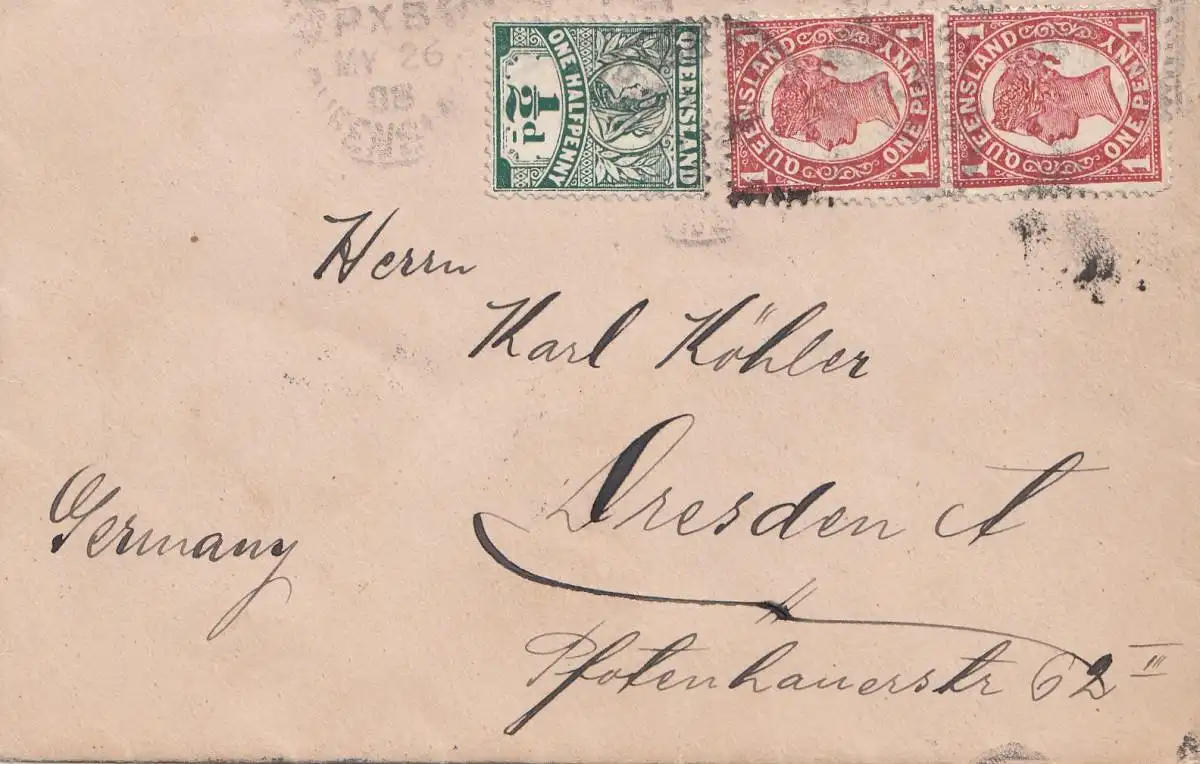 MY 26
08
QUEENSLAND
ONE HALFPENNY
½d
1 1
QUEENSLAND
ONE PENNY
1 1
1 1
QUEENSLAND
ONE PENNY
1 1
Herrn
Karl Köhler
Dresden A
Germany
Pfotenhauerstr 62 III